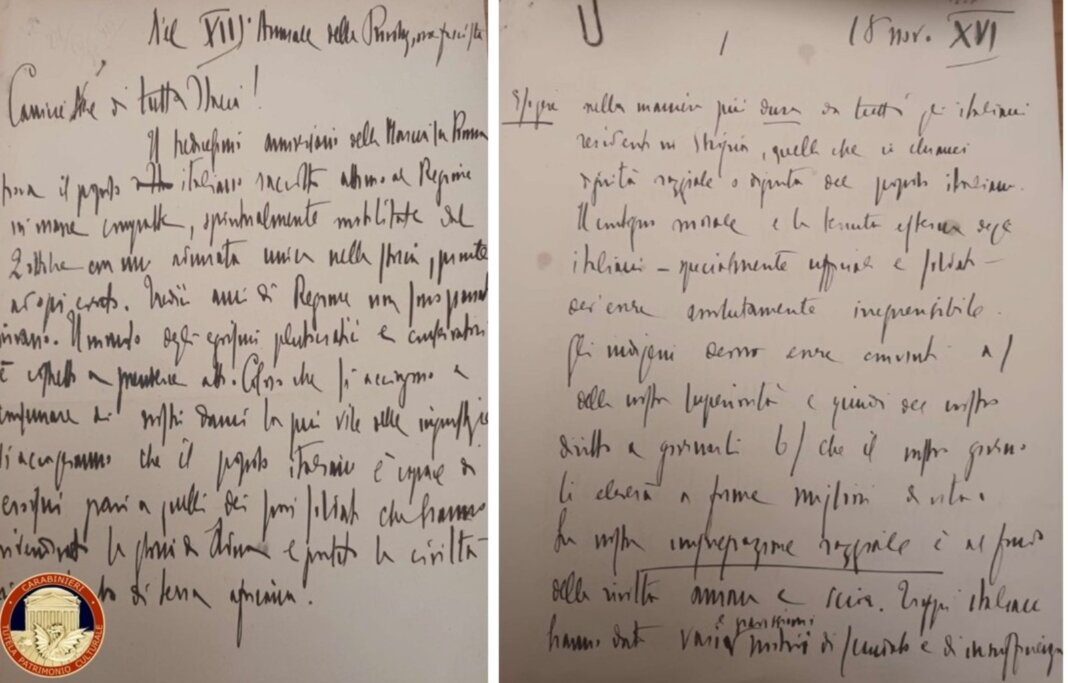 Nel XIII Annuale della Rivoluz. ora fascista
Camicie Nere di tutta Italia!
Il tredicesimo anniversario della Marcia su Roma
trova il popolo italiano raccolto attorno al Regime
in masse compatte, spiritualmente mobilitate dal
2 ottobre con una adunata unica nella storia, pronte
ad ogni evento. Tredici anni di Regime non sono passati
invano. Il mondo degli egoismi plutocratici e conservatori
è costretto a prendere atto. Coloro che si accingono a
consumare ai nostri danni la più vile delle ingiustizie
si accorgeranno che il popolo italiano è capace di
eroismi pari a quelli dei suoi soldati che hanno
la gloria di Adua e portato la civiltà
di terra africana.
CARABINIERI
TUTELA PATRIMONIO CULTURALE
1
18 nov. XVI
Esigere nella maniera più dura da tutti gli italiani
residenti in Etiopia, quella che si chiama
dignità razziale o dignità del popolo italiano.
Il contegno morale e la tenuta esterna degli
italiani - specialmente ufficiali e soldati -
dev'essere assolutamente irreprensibile.
Gli indigeni devono essere convinti a/
della nostra superiorità e quindi del nostro
diritto a governarli b/ che il nostro governo
li eleverà a forme migliori di vita.
La nostra impreparazione razziale è al fondo
della rivolta amara e. Troppi italiani
hanno dato vari e gravissimi motivi di scandalo e di insufficienza